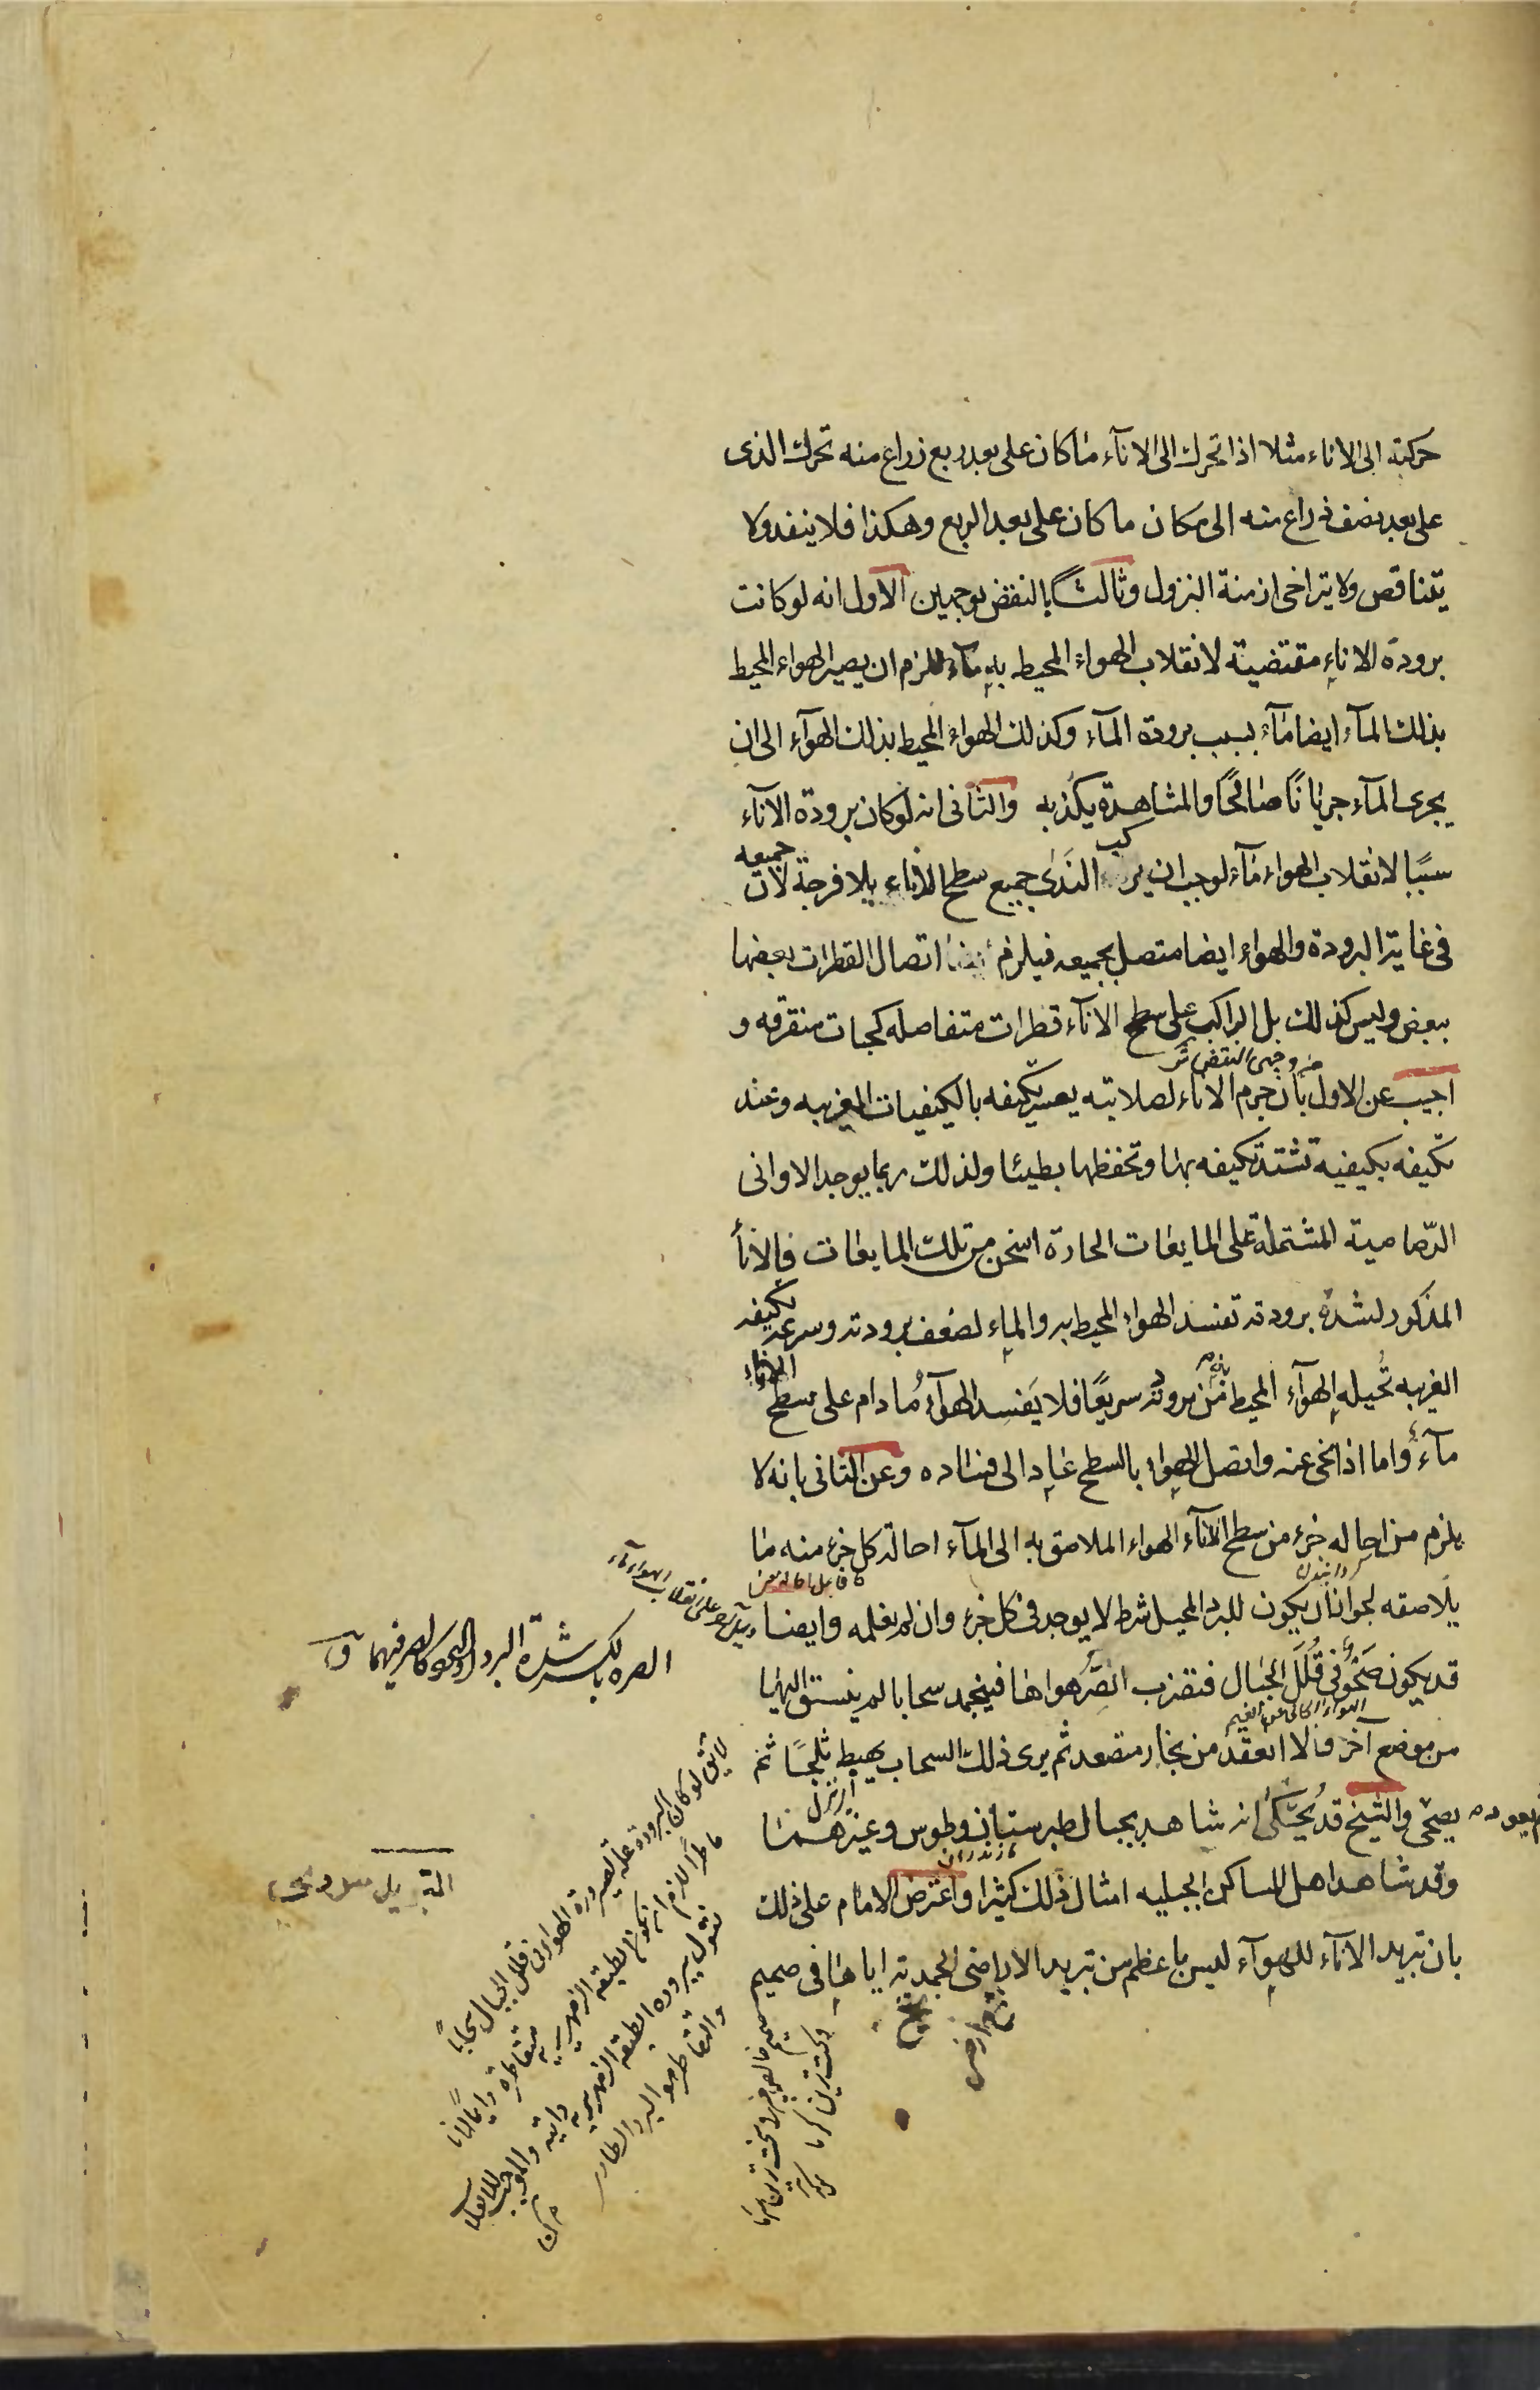 حركته الى الاناء مثلا اذا تحرك الى الانآء ما كان على بعد ربع زراع منه تحرك الذى
على بعد نصف ذراع منه الى مكان ما كان على بعد الربع وهكذا فلا ينفد ولا
يتناقص ولا يتراخى ازمنة النزول وثالثاً بالنقض بوجهين الاول انه لو كانت
برودة الاناء مقتضية لانقلاب الهواء المحيط به مآء للزم ان يصير الهواء المحيط
بذلك المآء ايضا مآء بسبب برودة المآء وكذلك الهواء المحيط بذلك الهوآء الى ان
يجرى المآء جريانًا صالحًا والمشاهدة يكذبه والثانى انه لو كان برودة الانآء
سببًا لانقلاب الهواء مآء لوجب ان يركب الندى جميع سطح الاناء بلا فرجة لان جميعه
فى غاية البرودة والهواء ايضا متصل بجميعه فيلزم ايضا اتصال القطرات بعضها
ببعض وليس كذلك بل الراكب على سطح الانآء قطرات متفاصله كحبات متفرقه و
من وجهى النقض
اجيب عن الاول بان جرم الاناء لصلابته يعسر تكيفه بالكيفيات الغريبه وعند
تكيفه بكيفيه تشتد تكيفه بها وتحفظها بطيئا ولذلك ربما يوجد الاوانى
الرصاصية المشتملة على المايعات الحارة اسخن من تلك المايعات فالانأ
المذكور لشدة برودته تفسد الهواء المحيط به والماء لضعف برودته وسرعة تكيفه
الغريبه تُحيله الهوآء المحيط من برودته سريعًا فلا يَفسد الهوآء مُا دام على سطح الاناء
مآءً واما اذا نحى عنه واتصل الهواء بالسطح عاد الى فساده وعن الثانى بانه لا
يلزم من احاله جزء من سطح الانآء الهواء الملاصق به الى المآء احالة كل جزء منه ما
يلاصقه لجواز ان يكون للبرد المحيل شرط لا يوجد فى كل جزء وان لم نعلمه وايضا
قد يكون صَحْوٌ فى قُلَلِ الجبال فتضرب الصِرُّ هواها فينجمد سحابا لم ينسق اليها
من موضع آخر ولا انعقد من بخار متصعد ثم يرى ذلك السحاب يهبط ثلجًا ثم
يصحى ثم يعود والشيخ قد يُحكى انه شاهد بجبال طبرستان وطوس وغيرهما
مازندران
وقد شاهد اهل المساكن الجبليه امثال ذلك كثيرا واعترض الامام على ذلك
بان تبريد الانآء للهوآء ليس باعظم من تبريد الاراضى الجمدية اياها فى صميم
الصره بالكسر شدة البرد
لا يق لو كان البرودة علة لصيرورة الهواء فى قلل الجبال سحابًا
ماطرًا للزم ان تكون الطبقة الزمهريريه متقاطره دايمًا لانا
نقول برودة الطبقه الزمهريريه ذاتيه والموجب للانقلاب
والتقاطر هو البرد الطارى